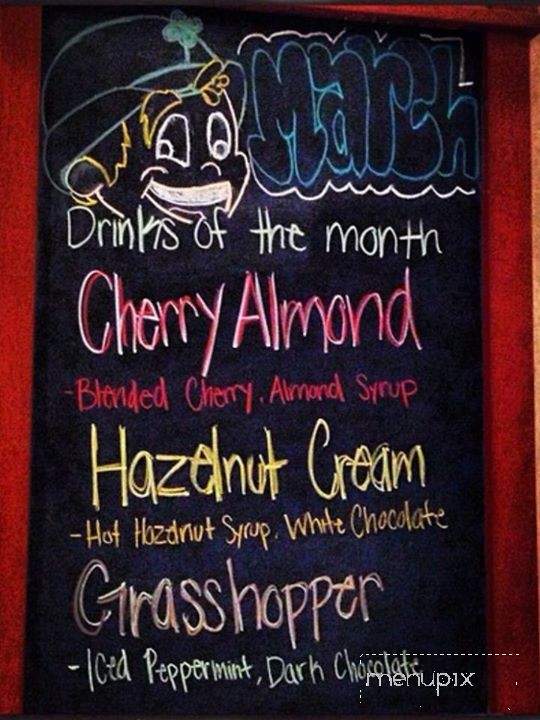 March
Drinks of the month
Cherry Almond
-Blended Cherry, Almond Syrup
Hazelnut Cream
-Hot Hazelnut Syrup, White Chocolate
Grasshopper
-Iced Peppermint, Dark Chocolate
menupix